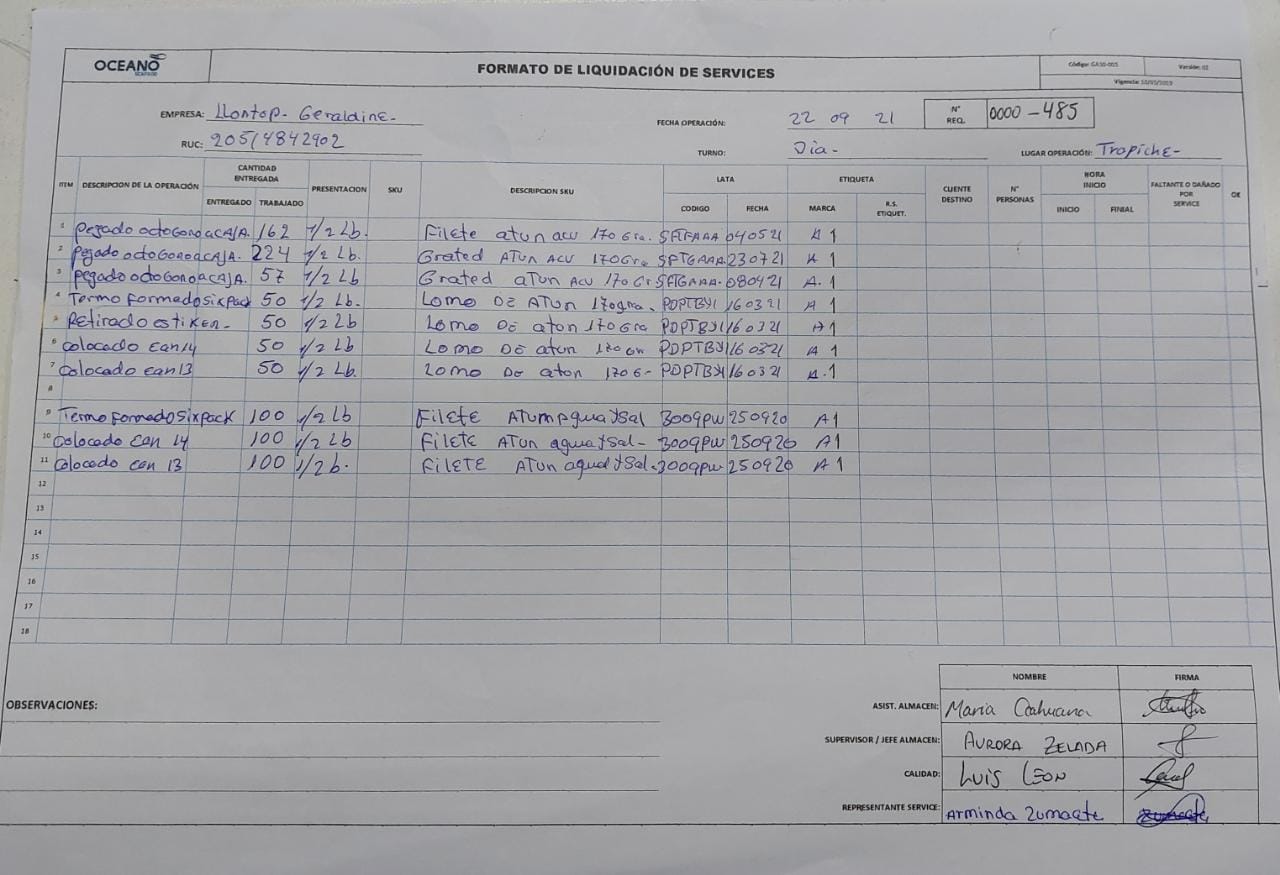 OCEANO
SEAFOOD
FORMATO DE LIQUIDACIÓN DE SERVICES
Código: GA10-003 Versión: 02
Vigencia: 10/05/2019
EMPRESA: Llontop- Geraldine-
FECHA OPERACIÓN: 22 09 21
N° REQ. 0000-485
RUC: 20514842902
TURNO: Dia-
LUGAR OPERACIÓN: Trapiche-
ITEM DESCRIPCION DE LA OPERACIÓN CANTIDAD ENTREGADA PRESENTACION SKU DESCRIPCION SKU LATA ETIQUETA CLIENTE DESTINO N° PERSONAS HORA INICIO FALTANTE O DAÑADO POR SERVICE OK
ENTREGADO TRABAJADO CODIGO FECHA MARCA R.S. ETIQUET. INICIO FINIAL
1 Pegado octoGono a CAJA. 162 1/2 Lb. Filete atun acv 170 Gra. 040521 A 1
2 pegado octoGono a CAJA. 224 1/2 Lb Grated ATUN ACV 170Gr SPTGAAA 230721 A 1
3 pegado octoGono a CAJA. 57 1/2 Lb Grated aTun Acv 170 Gr 080421 A.1
4 Termo Formado Sixpack 50 1/2 Lb. Lomo DE ATUN 170gra. PDPTBY1 160321 A 1
5 Retirado estiKer- 50 1/2 Lb Lomo DE aton 170 Gra PDPTBY1 160321 A1
6 Colocado Ean14 50 1/2 Lb Lomo DE atun 170 Gr PDPTBY1 160321 A 1
7 Colocado Ean13 50 1/2 Lb. Lomo DE aton 170 G- PDPTBY1 160321 A.1
8
9 Termo Formado Sixpack 100 1/2 Lb FilEtE ATUM Agua y Sal 3009PW 250920 A1
10 Colocado Ean 14 100 1/2 Lb FilEtE ATun agua y Sal- 3009PW 250920 A1
11 Colocado Ean 13 100 1/2 b. FilEtE ATun agua y Sal- 3009PW 250920 A 1
12
13
14
15
16
17
18
NOMBRE FIRMA
OBSERVACIONES:
ASIST. ALMACEN: Maria Cahuana
SUPERVISOR / JEFE ALMACEN: AURORA ZELADA
CALIDAD: LUIS LEON
REPRESENTANTE SERVICE: Arminda Zumaete Zumaete